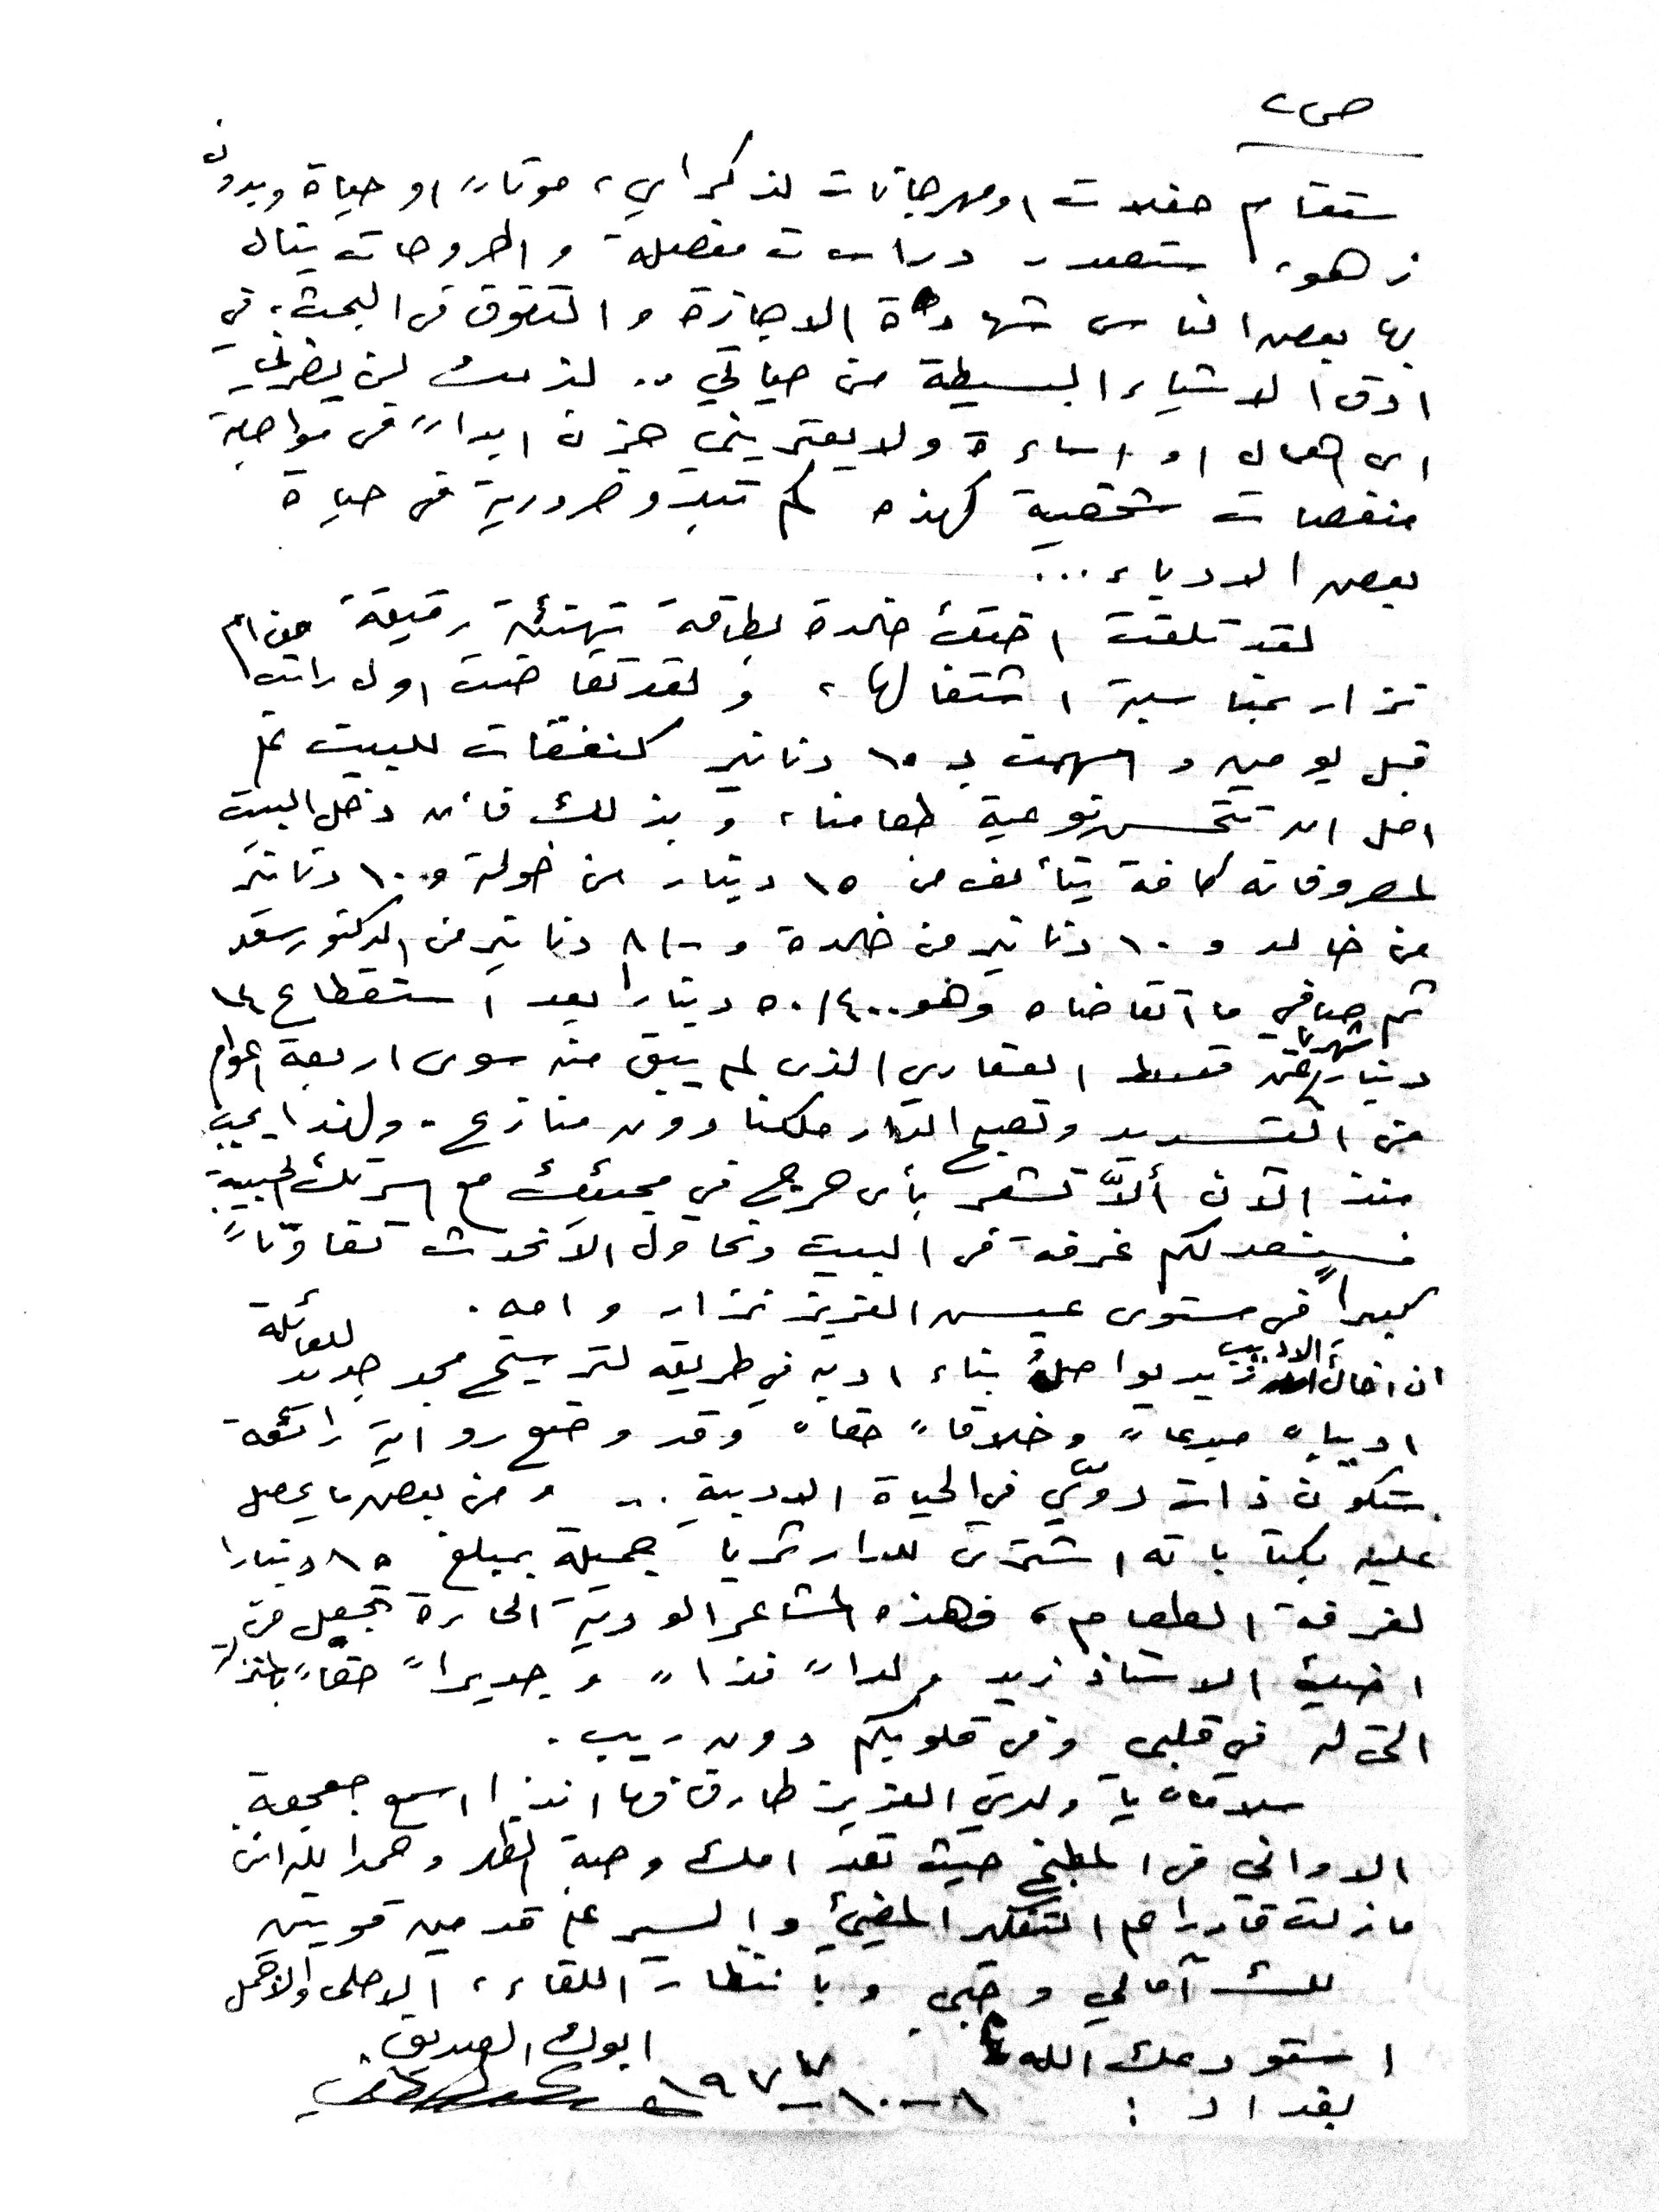 ص ٢
ستقام حفلات او مهرجانات لذكراي، موتاً او حياة وبدون
زهو، ستصدر دراسات مفصلة واطروحات ينال
بها بعض الناس شهادة الاجازة والتفوق في البحث، في
ادق الاشياء البسيطة من حياتي .. لذلك لن يضرني
اي اهمال او اساءة ولا يعتريني حزن ابداً في مواجهة
منغصات شخصية كهذه لم تبدو ضرورية في حياة
بعض الادباء ...
لقد تلقت اختك خالدة بطاقة تهنئة رقيقة من ام
نزار بمناسبة اشتغالها، ولقد تقاضت اول راتب
قبل يومين واسهمت بـ ١٥ دنانير كنفقات للبيت على
امل ان تتحسن نوعية طعامنا، وبذلك فأن دخل البيت
لمصروفاته كافة يتألف من ١٥ دينار من خولة و ١٠ دنانير
من خالد و ١٠ دنانير من خالدة و ٨/- دنانير من الدكتور سعد
ثم صافي ما اتقاضاه وهو ٥٠/٤٠٠ ديناراً بعد استقطاع ١٤
دينار شهريا عن قسط العقاري الذي لم يبق منه سوى اربعة اعوام
من التسديد وتصبح الدار ملكنا دون منازع - ولهذا يجب
منذ الآن ألاّ تشعر بأي حرج في مجيئك مع اسرتك الحبيبة
فسنعد لكم غرفة في البيت ونحاول الا نحدث تفاوتاً
كبيراً في مستوى عيش العزيز نزار وامه.
ان اخاك الاديب زيد يواصل بناء ادبه في طريقه لترسيخ مجد جديد للعائلة
اديباً مبدعاً وخلاقاً حقاً وقد وضع رواية رائعة
ستكون ذات دويّ في الحياة الادبية .. ومن بعض ما يحصل
عليه بكتاباته اشترى للدار ثريا جميلة بمبلغ ٨٥ دينارا
لغرفة الطعام، فهذه المشاعر الودية الحارة تجعل من
اخيك الاستاذ زيد ولداً فذاً وجديراً حقاً بالمنزلة
التي له في قلبي وفي قلوبكم دون ريب.
سلاماً يا ولدي العزيز طارق فها انذا اسمع جعجعة
الاواني في المطبخ حيث تعد امك وجبة الظهر وحمدا لله انني
مازلت قادرا على التفكير المضيئ والسير على قدمين قويتين
لك آمالي وحبي وبانتظار اللقاء، الاحلى والاجمل
استودعك الله
ابوك الصديق
بغداد : ٨-١٠-١٩٧٧